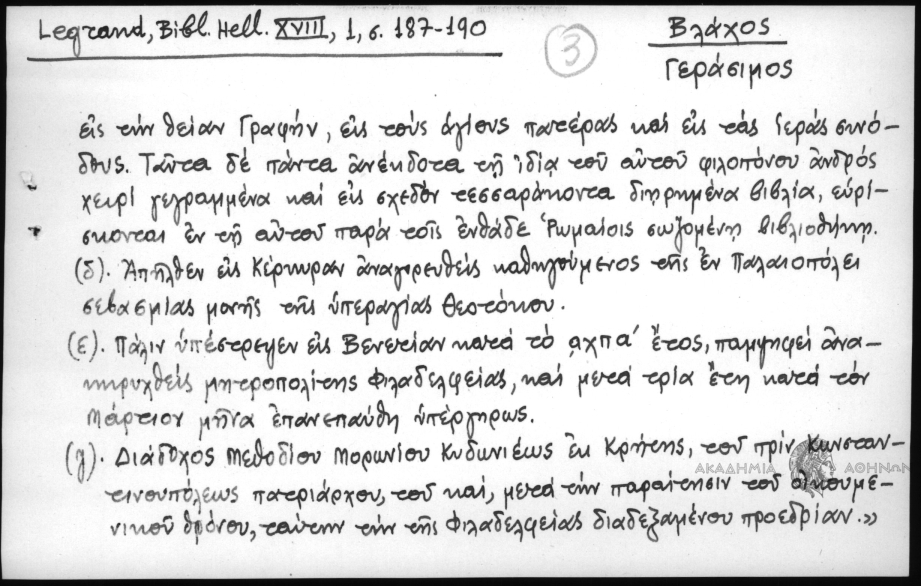 Legrand, Bibl. Hell. XVIII, 1, σ. 187-190
3
Βλάχος
Γεράσιμος
εἰς τὴν θείαν Γραφήν, εἰς τοὺς ἁγίους πατέρας καὶ εἰς τὰς ἱερὰς συνό-
δους. Ταῦτα δὲ πάντα ἀνέκδοτα τῇ ἰδίᾳ τοῦ αὐτοῦ φιλοπόνου ἀνδρὸς
χειρὶ γεγραμμένα καὶ εἰς σχεδὸν τεσσαράκοντα διῃρημένα βιβλία, εὑρί-
σκονται ἐν τῇ αὐτοῦ παρὰ τοῖς ἐνθάδε Ῥωμαίοις σωζομένῃ βιβλιοθήκῃ.
(δ). Ἀπῆλθεν εἰς Κέρκυραν ἀναγορευθεὶς καθηγούμενος τῆς ἐν Παλαιοπόλει
σεβασμίας μονῆς τῆς ὑπεραγίας Θεοτόκου.
(ε). Πάλιν ὑπέστρεψεν εἰς Βενετίαν κατὰ τὸ ͵αχπα΄ ἔτος, παμψηφεὶ ἀνα-
κηρυχθεὶς μητροπολίτης Φιλαδελφείας, καὶ μετὰ τρία ἔτη κατὰ τὸν
Μάρτιον μῆνα ἐπανεπαύθη ὑπέργηρως.
(ϛ). Διάδοχος Μεθοδίου Μορωνίου Κυδωνιέως ἐκ Κρήτης, τοῦ πρὶν Κωνσταν-
ΑΚΑΔΗΜΙΑ ΑΘΗΝΩΝ
τινουπόλεως πατριάρχου, τοῦ καί, μετὰ τὴν παραίτησιν τοῦ οἰκουμε-
νικοῦ θρόνου, ταύτην τὴν τῆς Φιλαδελφείας διαδεξαμένου προεδρίαν.»